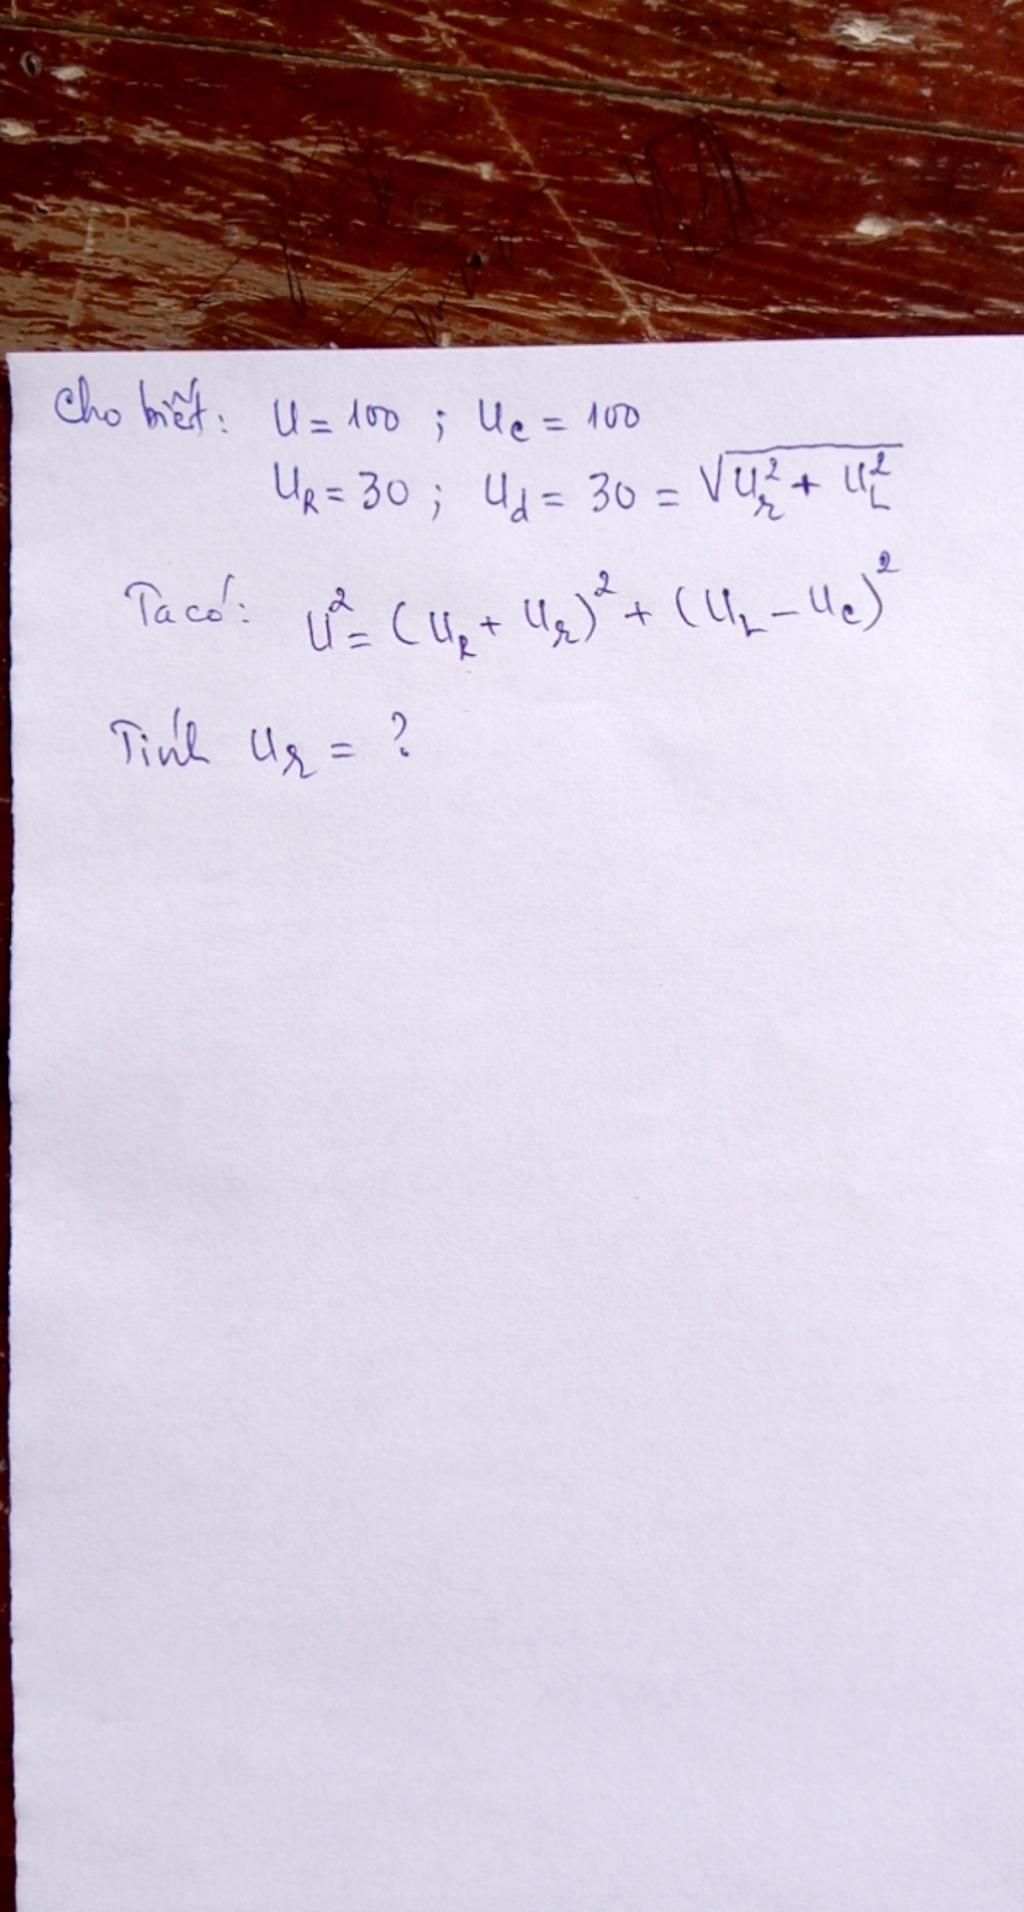 Cho biết: U = 100 ; Uc = 100
UR = 30 ; Ud = 30 = √(Ur² + UL²)
Ta có: U² = (UR + Ur)² + (UL - Uc)²
Tính Ur = ?